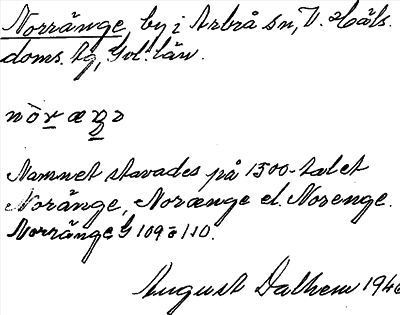 Norränge, by i Arbrå sn, V. Häls.
doms. tg, Gvl. län.
Namnet stavades på 1500-talet
Noränge, Norænge el. Norenge.
Norränge G 109 o 110.
August Dalhem 1946